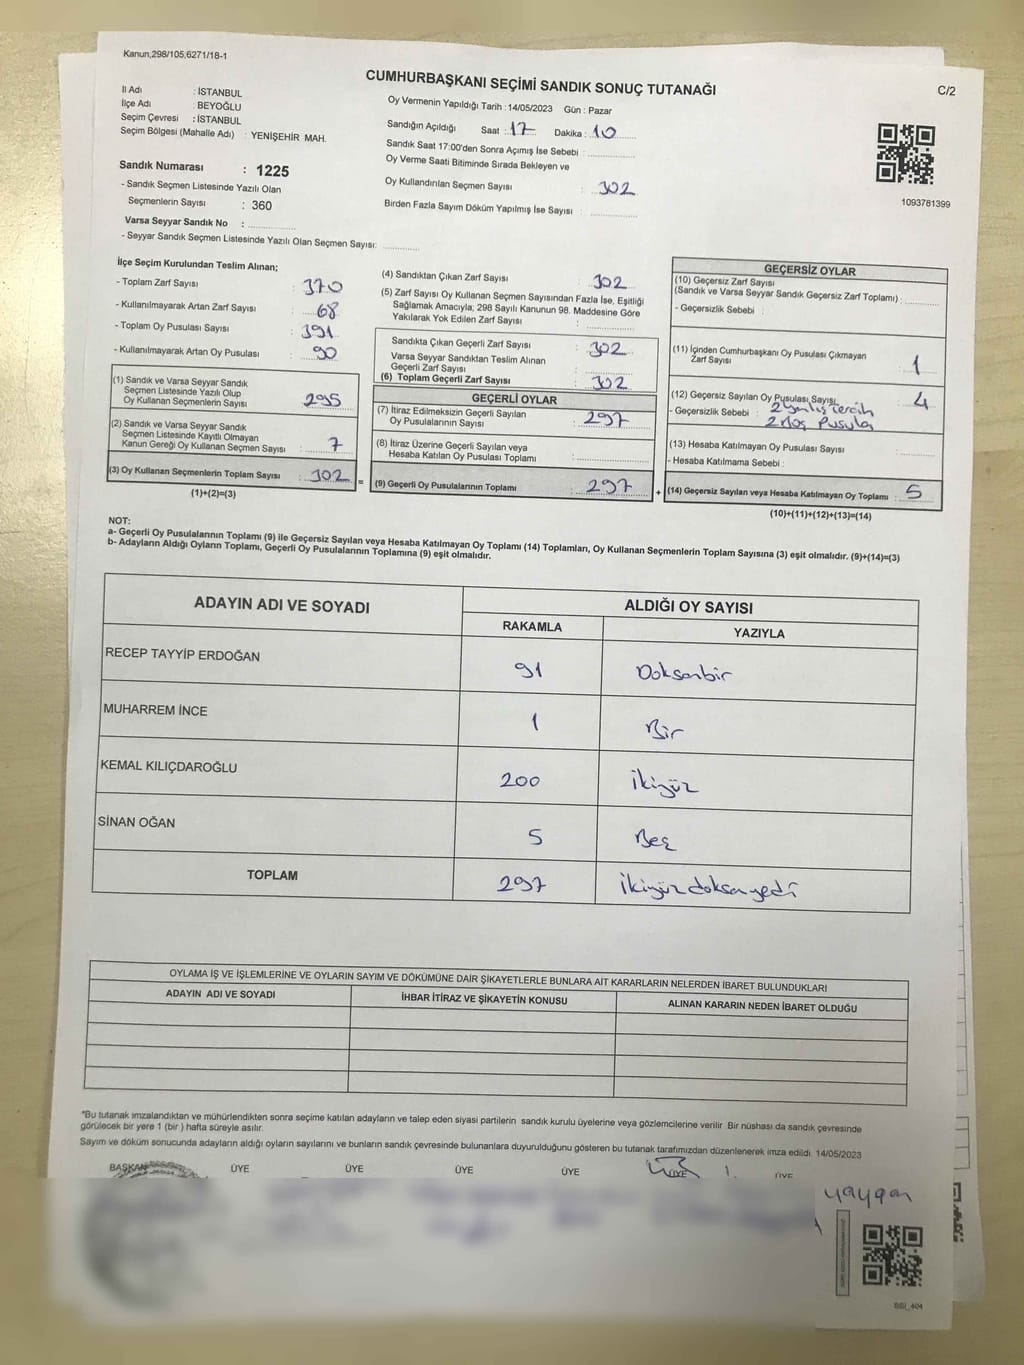 Kanun,298/105,6271/18-1
CUMHURBAŞKANI SEÇİMİ SANDIK SONUÇ TUTANAĞI
C/2
İl Adı : İSTANBUL
İlçe Adı : BEYOĞLU
Seçim Çevresi : İSTANBUL
Seçim Bölgesi (Mahalle Adı) : YENİŞEHİR MAH.
Sandık Numarası : 1225
- Sandık Seçmen Listesinde Yazılı Olan
Seçmenlerin Sayısı : 360
Varsa Seyyar Sandık No :
- Seyyar Sandık Seçmen Listesinde Yazılı Olan Seçmen Sayısı:
Oy Vermenin Yapıldığı Tarih : 14/05/2023 Gün : Pazar
Sandığın Açıldığı Saat : 17 Dakika : 10
Sandık Saat 17:00'den Sonra Açımış İse Sebebi :
Oy Verme Saati Bitiminde Sırada Bekleyen ve
Oy Kullandırılan Seçmen Sayısı : 302
Birden Fazla Sayım Döküm Yapılmış İse Sayısı :
1093781399
İlçe Seçim Kurulundan Teslim Alınan;
- Toplam Zarf Sayısı : 370
- Kullanılmayarak Artan Zarf Sayısı : 68
- Toplam Oy Pusulası Sayısı : 391
- Kullanılmayarak Artan Oy Pusulası : 90
(1) Sandık ve Varsa Seyyar Sandık
Seçmen Listesinde Yazılı Olup
Oy Kullanan Seçmenlerin Sayısı : 295
(2) Sandık ve Varsa Seyyar Sandık
Seçmen Listesinde Kayıtlı Olmayan
Kanun Gereği Oy Kullanan Seçmen Sayısı : 7
(3) Oy Kullanan Seçmenlerin Toplam Sayısı : 302
(1)+(2)=(3)
=
(4) Sandıktan Çıkan Zarf Sayısı : 302
(5) Zarf Sayısı Oy Kullanan Seçmen Sayısından Fazla İse, Eşitliği
Sağlamak Amacıyla; 298 Sayılı Kanunun 98. Maddesine Göre
Yakılarak Yok Edilen Zarf Sayısı :
Sandıkta Çıkan Geçerli Zarf Sayısı : 302
Varsa Seyyar Sandıktan Teslim Alınan
Geçerli Zarf Sayısı :
(6) Toplam Geçerli Zarf Sayısı : 302
GEÇERLİ OYLAR
(7) İtiraz Edilmeksizin Geçerli Sayılan
Oy Pusulalarının Sayısı : 297
(8) İtiraz Üzerine Geçerli Sayılan veya
Hesaba Katılan Oy Pusulası Toplamı :
(9) Geçerli Oy Pusulalarının Toplamı : 297
+
GEÇERSİZ OYLAR
(10) Geçersiz Zarf Sayısı
(Sandık ve Varsa Seyyar Sandık Geçersiz Zarf Toplamı) :
- Geçersizlik Sebebi :
(11) İçinden Cumhurbaşkanı Oy Pusulası Çıkmayan
Zarf Sayısı : 1
(12) Geçersiz Sayılan Oy Pusulası Sayısı : 4
- Geçersizlik Sebebi : 2 yanlış tercih
2 Boş Pusula
(13) Hesaba Katılmayan Oy Pusulası Sayısı :
- Hesaba Katılmama Sebebi :
(14) Geçersiz Sayılan veya Hesaba Katılmayan Oy Toplamı : 5
(10)+(11)+(12)+(13)=(14)
NOT:
a- Geçerli Oy Pusulalarının Toplamı (9) ile Geçersiz Sayılan veya Hesaba Katılmayan Oy Toplamı (14) Toplamları, Oy Kullanan Seçmenlerin Toplam Sayısına (3) eşit olmalıdır. (9)+(14)=(3)
b- Adayların Aldığı Oyların Toplamı, Geçerli Oy Pusulalarının Toplamına (9) eşit olmalıdır.
ADAYIN ADI VE SOYADI
ALDIĞI OY SAYISI
RAKAMLA YAZIYLA
RECEP TAYYİP ERDOĞAN 91 Doksanbir
MUHARREM İNCE 1 Bir
KEMAL KILIÇDAROĞLU 200 İkiyüz
SİNAN OĞAN 5 Beş
TOPLAM 297 İkiyüz doksanyedi
OYLAMA İŞ VE İŞLEMLERİNE VE OYLARIN SAYIM VE DÖKÜMÜNE DAİR ŞİKAYETLERLE BUNLARA AİT KARARLARIN NELERDEN İBARET BULUNDUKLARI
ADAYIN ADI VE SOYADI İHBAR İTİRAZ VE ŞİKAYETİN KONUSU ALINAN KARARIN NEDEN İBARET OLDUĞU
*Bu tutanak imzalandıktan ve mühürlendikten sonra seçime katılan adayların ve talep eden siyasi partilerin sandık kurulu üyelerine veya gözlemcilerine verilir. Bir nüshası da sandık çevresinde
görülecek bir yere 1 (bir ) hafta süreyle asılır.
Sayım ve döküm sonucunda adayların aldığı oyların sayılarını ve bunların sandık çevresinde bulunanlara duyurulduğunu gösteren bu tutanak tarafımızdan düzenlenerek imza edildi. 14/05/2023
BAŞKAN ÜYE ÜYE ÜYE ÜYE ÜYE ÜYE
yaygan
SSI_404